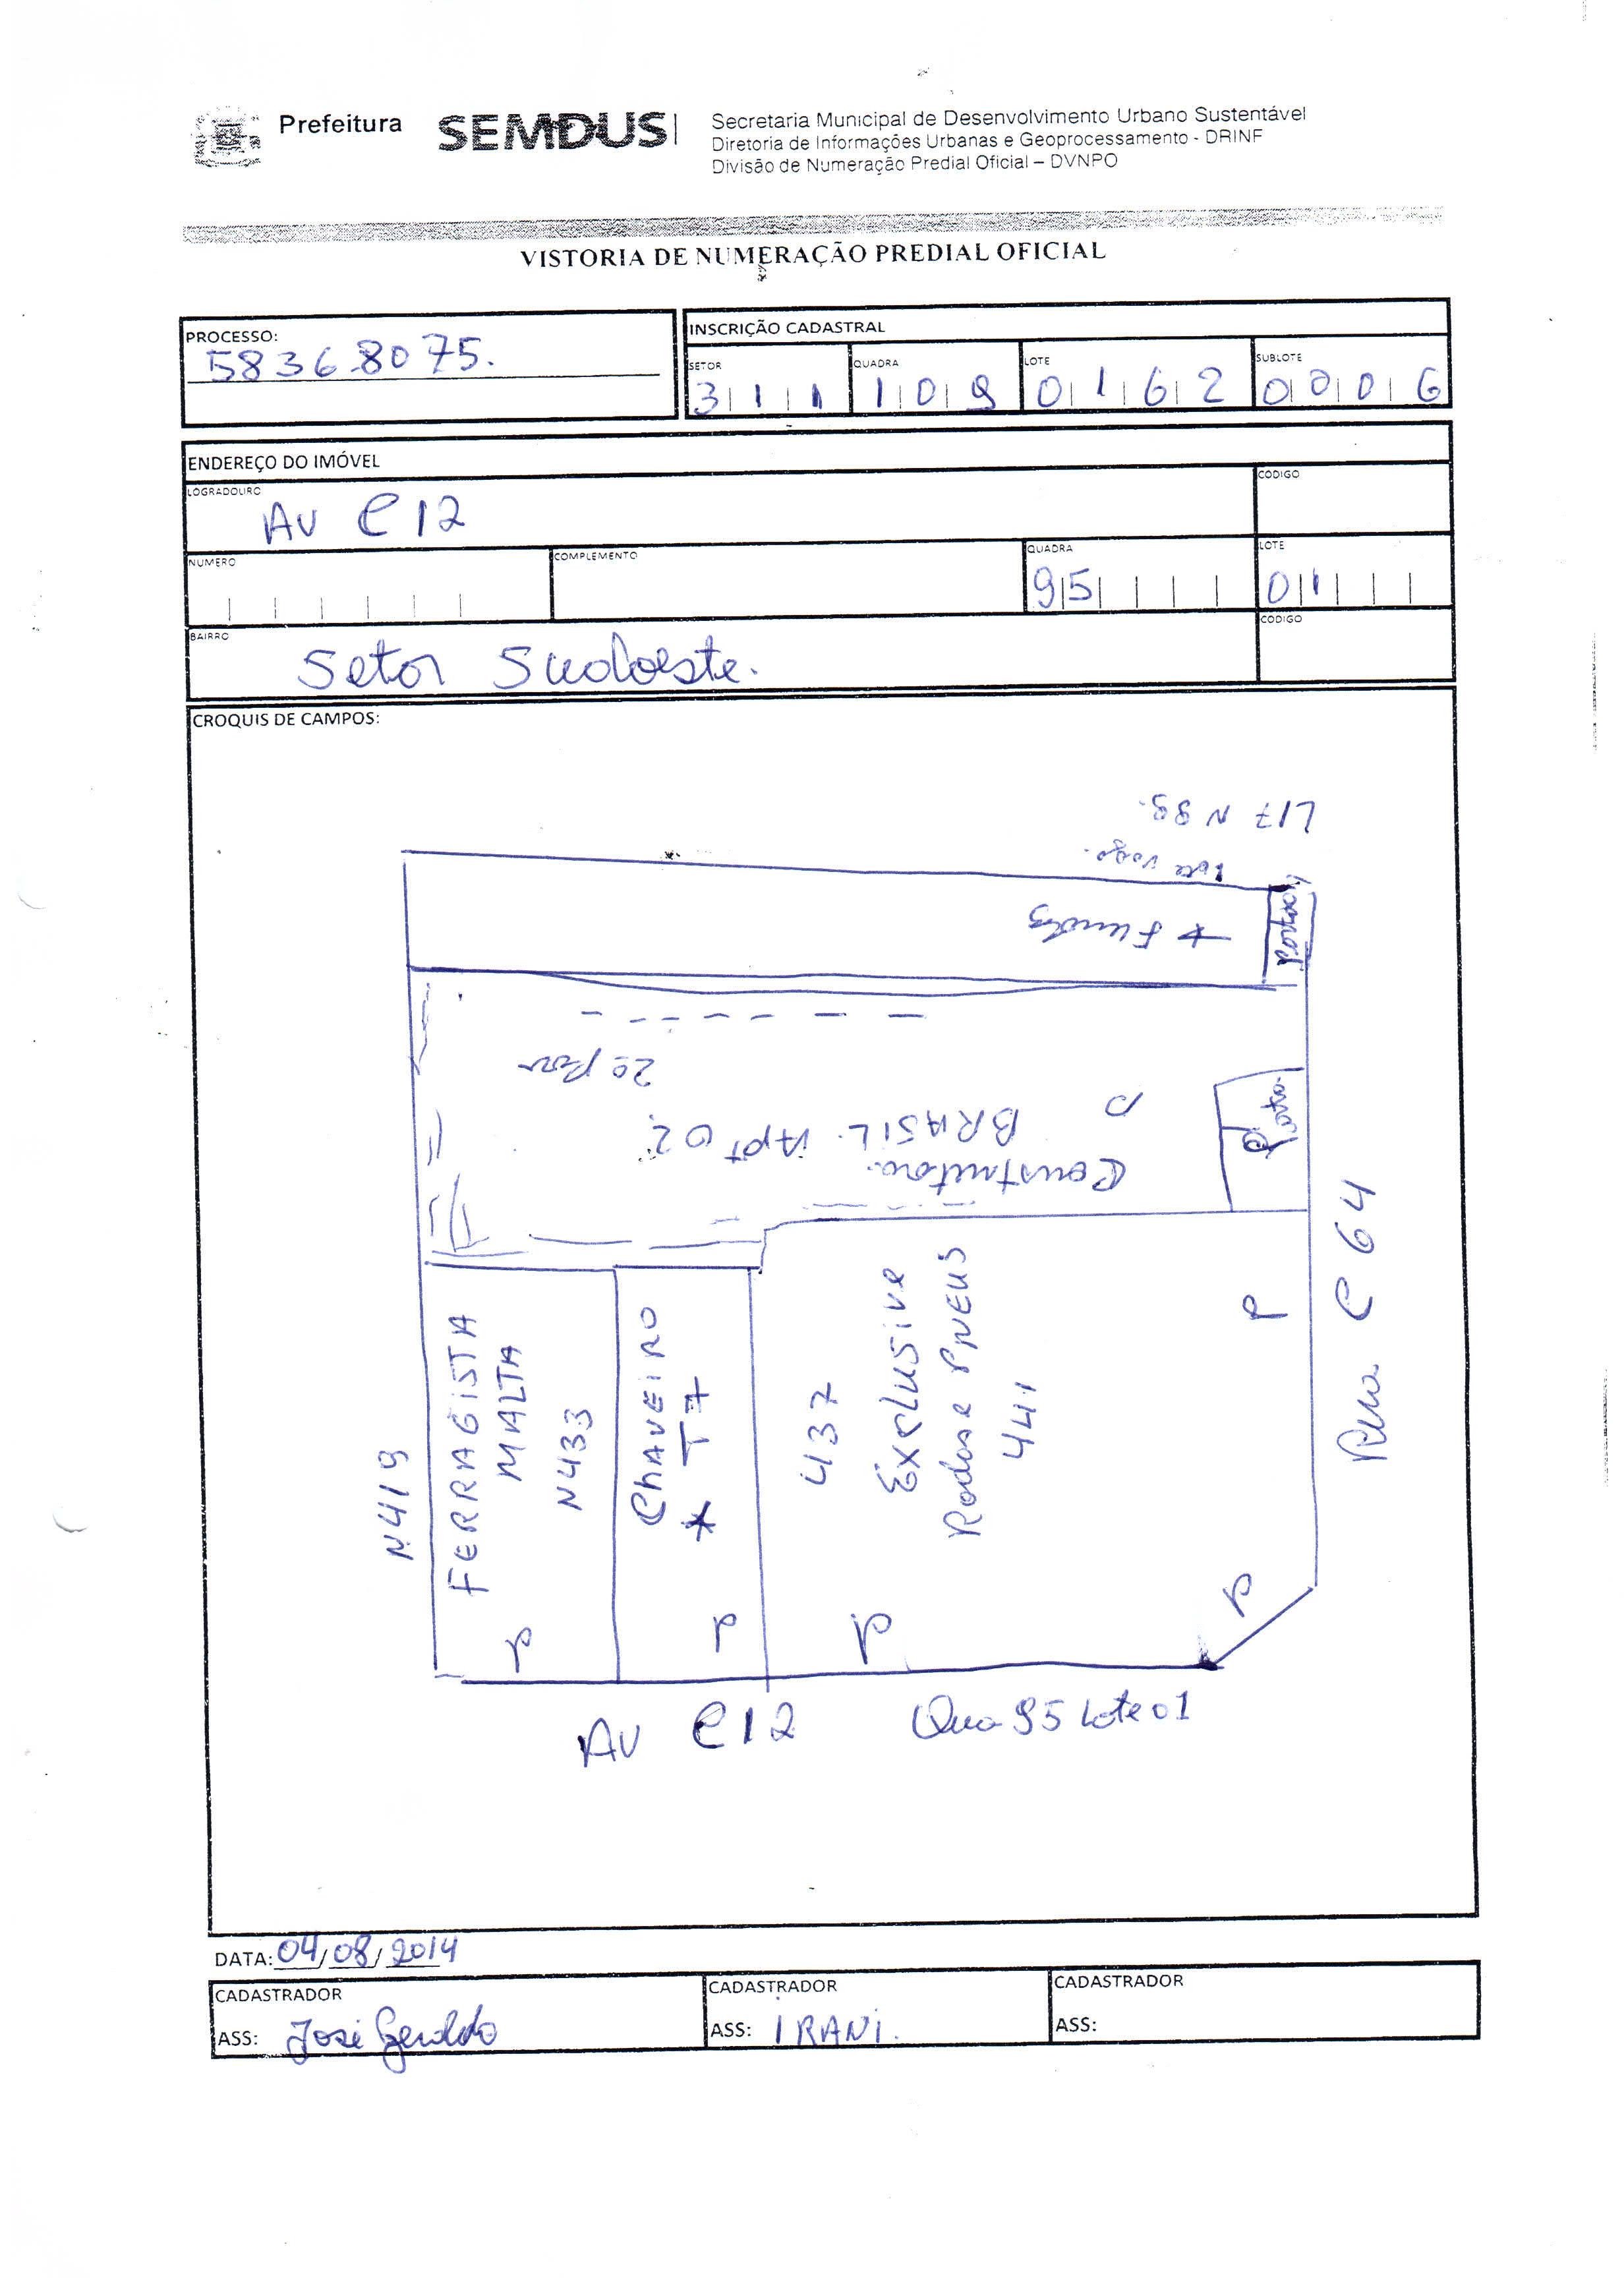 Prefeitura SEMDUS
Secretaria Municipal de Desenvolvimento Urbano Sustentável
Diretoria de Informações Urbanas e Geoprocessamento - DRINF
Divisão de Numeração Predial Oficial – DVNPO
VISTORIA DE NUMERAÇÃO PREDIAL OFICIAL
PROCESSO:
58368075.
INSCRIÇÃO CADASTRAL
SETOR QUADRA LOTE SUBLOTE
311 109 0162 0006
ENDEREÇO DO IMÓVEL
LOGRADOURO CODIGO
AV C12
NUMERO COMPLEMENTO QUADRA LOTE
95 01
BAIRRO CODIGO
Setor Sudoeste.
CROQUIS DE CAMPOS:
L17 N 99.
Lote vago.
Fundos
Portão
2º Pav
BRASIL. APT 02
Construtora.
Porta.
P
FERRAGISTA
MALTA
N433
N419
CHAVEIRO
* T7
437
Exclusive
Rodas e PNEUS
441
P
Rua C 64
P
P
P
P
AV C12
Qua 95 Lote 01
DATA: 04/08/2014
CADASTRADOR CADASTRADOR CADASTRADOR
ASS: José Geraldo ASS: IRANI. ASS: